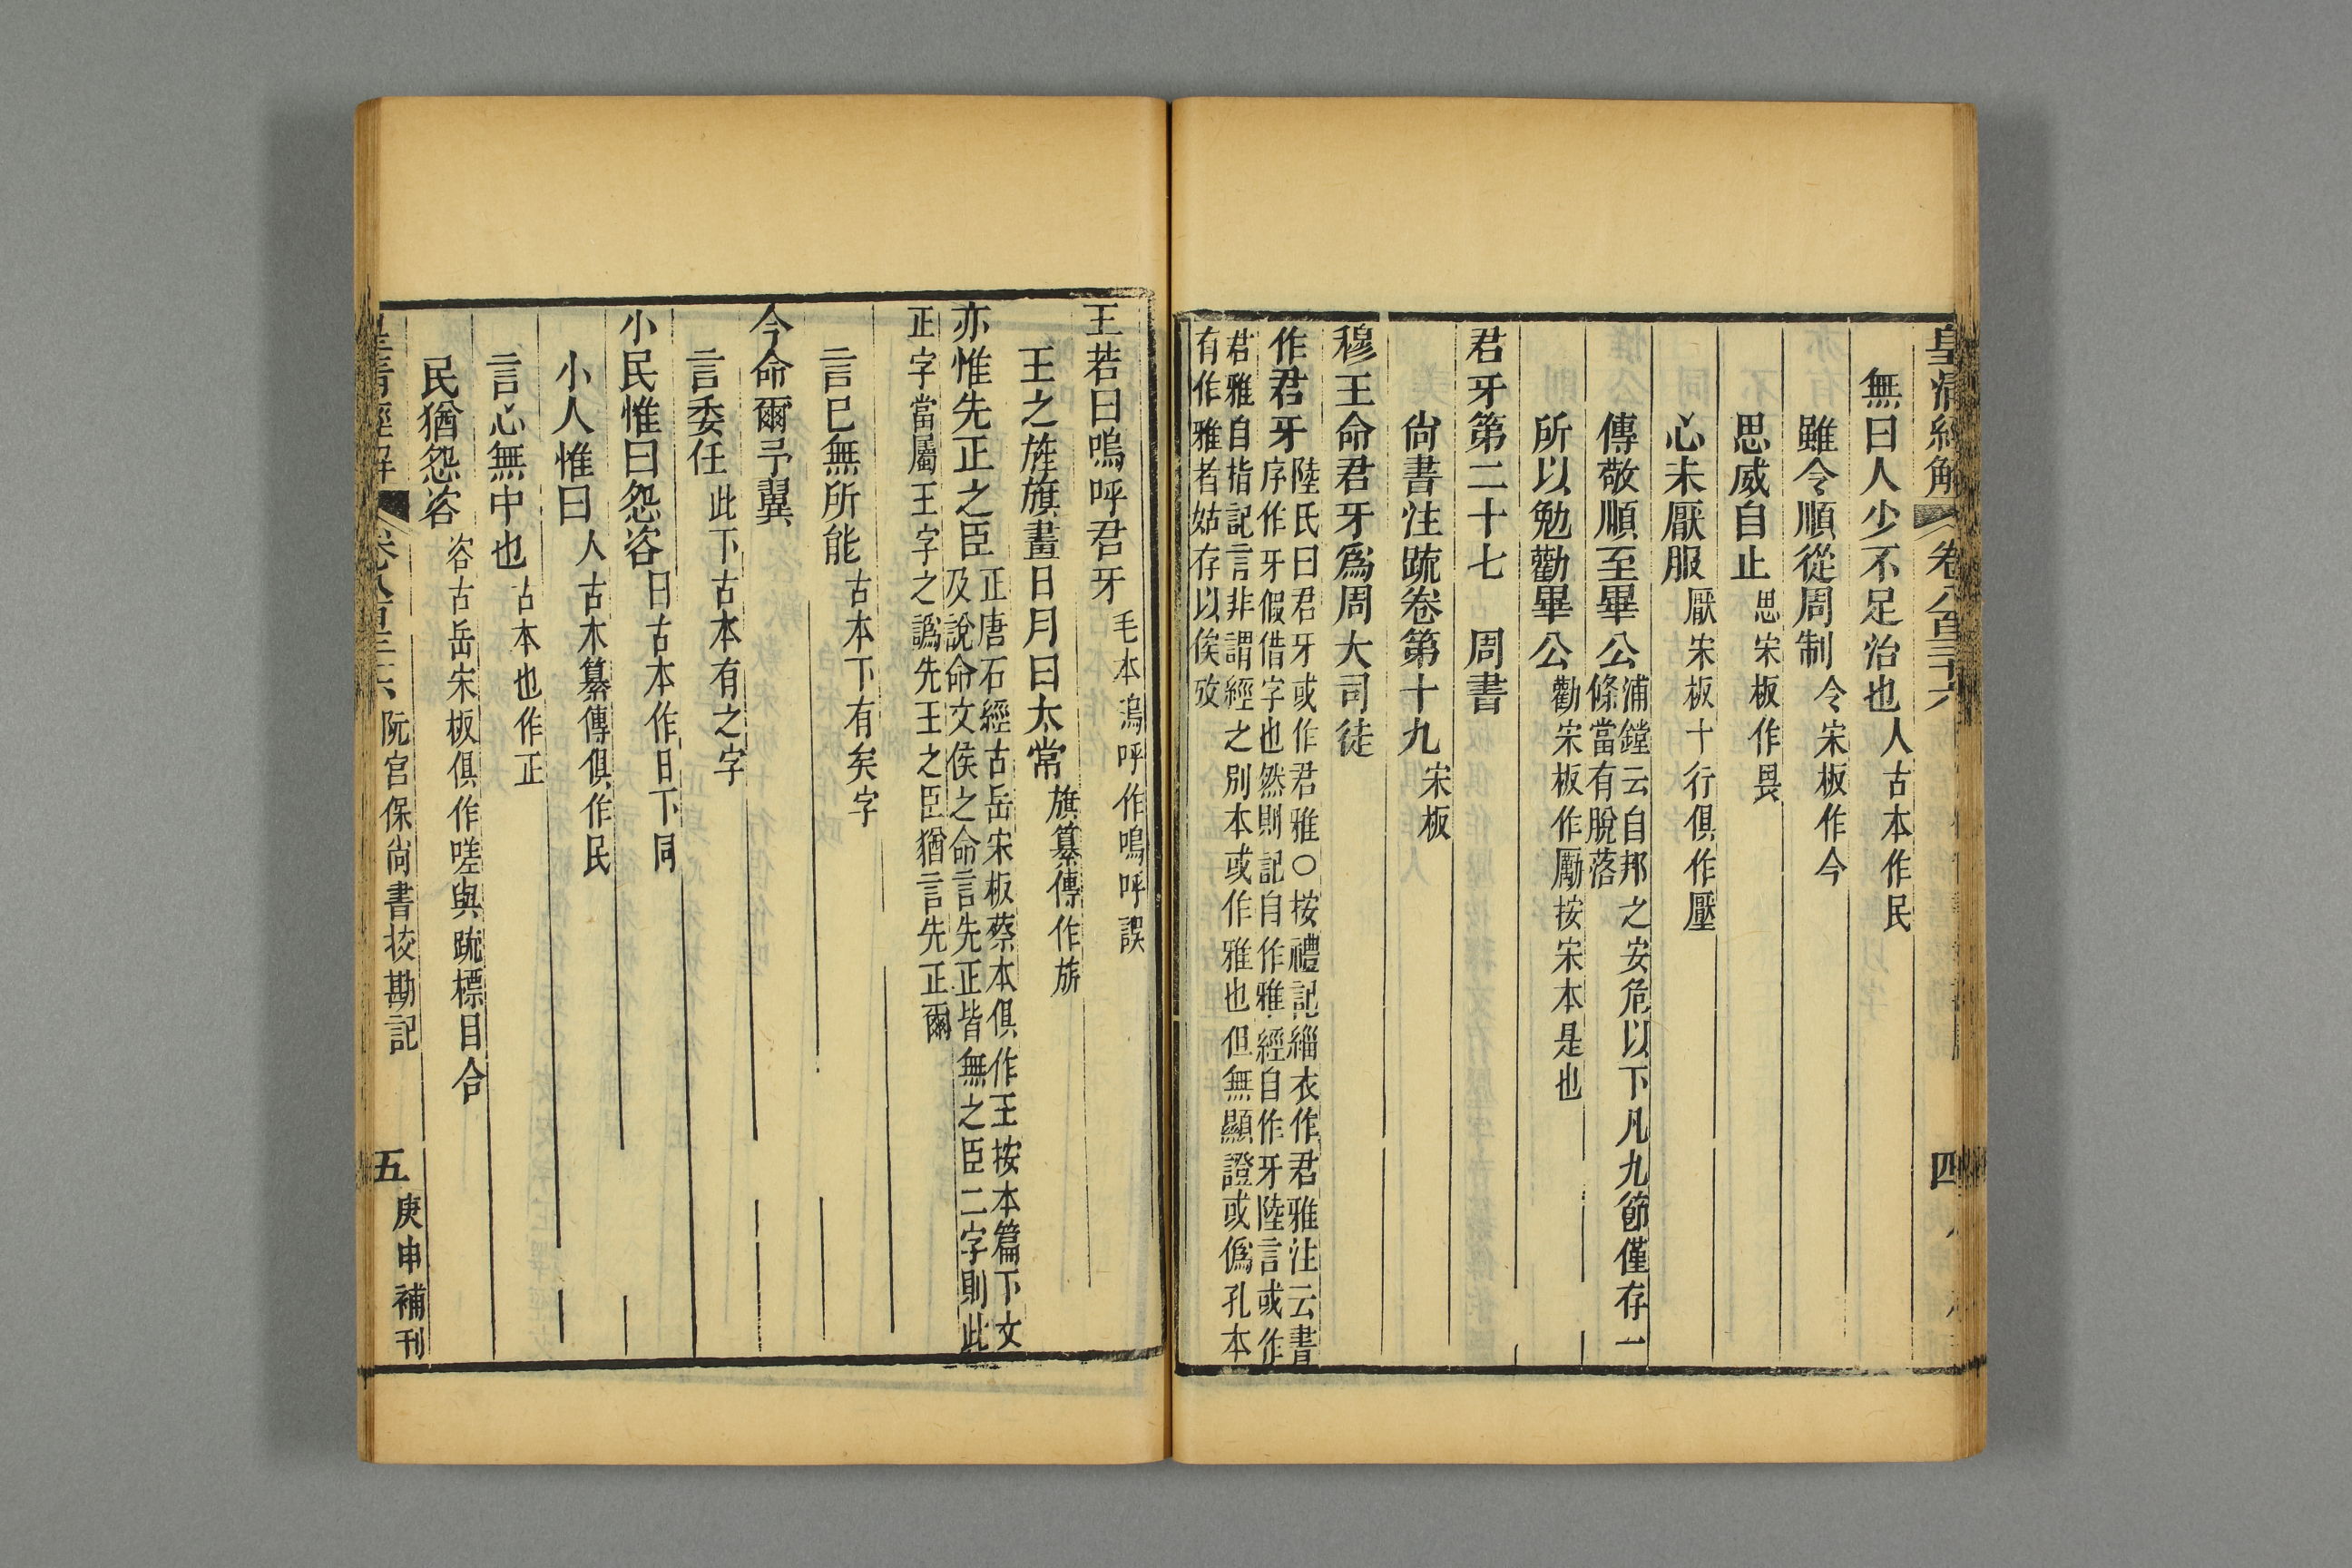 皇清經解 卷八百三十六 四
無曰人少不足治也人古本作民
雖令順從周制令宋板作今
思威自止思宋板作畏
心未厭服厭宋板十行俱作壓
傳敬順至畢公浦鏜云自邦之安危以下凡九節僅存一
條當有脫落
所以勉勸畢公勸宋板作勵按宋本是也
君牙第二十七 周書
尙書注疏卷第十九宋板
穆王命君牙爲周大司徒
作君牙陸氏曰君牙或作君雅○按禮記緇衣作君雅注云書
序作牙假借字也然則記自作雅經自作牙陸言或作
君雅自指記言非謂經之別本或作雅也但無顯證或僞孔本
有作雅者姑存以俟攷
王若曰嗚呼君牙毛本嗚呼作鳴呼誤
王之旌旗畫日月曰太常旗纂傳作旂
亦惟先正之臣正唐石經古岳宋板蔡本俱作王按本篇下文
及說命文侯之命言先正皆無之臣二字則此
正字當屬王字之譌先王之臣猶言先正爾
言已無所能古本下有矣字
今命爾予翼
言委任此下古本有之字
小民惟曰怨咨日古本作日下同
小人惟曰人古本纂傳俱作民
言心無中也古本也作正
民猶怨咨咨古岳宋板俱作嗟與疏標目合
皇清經解 卷八百三十六 阮宮保尙書挍勘記 五 庚申補刊